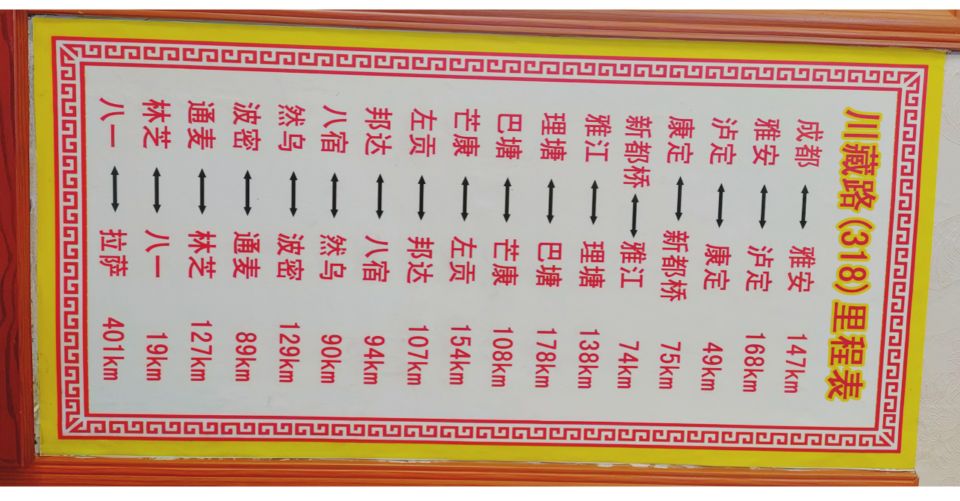 川藏路(318)里程表
成都 ↔ 雅安 147km
雅安 ↔ 泸定 168km
泸定 ↔ 康定 49km
康定 ↔ 新都桥 75km
新都桥 ↔ 雅江 74km
雅江 ↔ 理塘 138km
理塘 ↔ 巴塘 178km
巴塘 ↔ 芒康 108km
芒康 ↔ 左贡 154km
左贡 ↔ 邦达 107km
邦达 ↔ 八宿 94km
八宿 ↔ 然乌 90km
然乌 ↔ 波密 129km
波密 ↔ 通麦 89km
通麦 ↔ 林芝 127km
林芝 ↔ 八一 19km
八一 ↔ 拉萨 401km